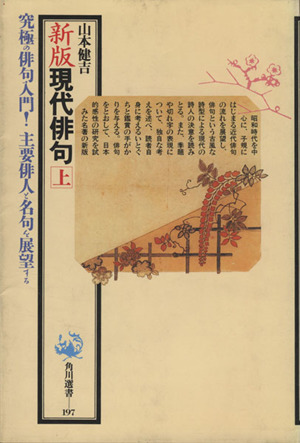 山本健吉
新版現代俳句 上
究極の俳句入門！主要俳人と名句を展望する
昭和時代を中
心に、子規に
はじまる近代俳句
の流れを展望し、
俳句という古風な
詩型による現代の
詩人の決意を読み
とる。また、季題
や切れ字の表現に
ついて、独自な考
えを述べ、読者自
身に考えるいとぐ
ちと鑑賞の手がか
りを与える。俳句
をとおして、日本
的感性の研究を試
みた名著の新版
角川選書
197